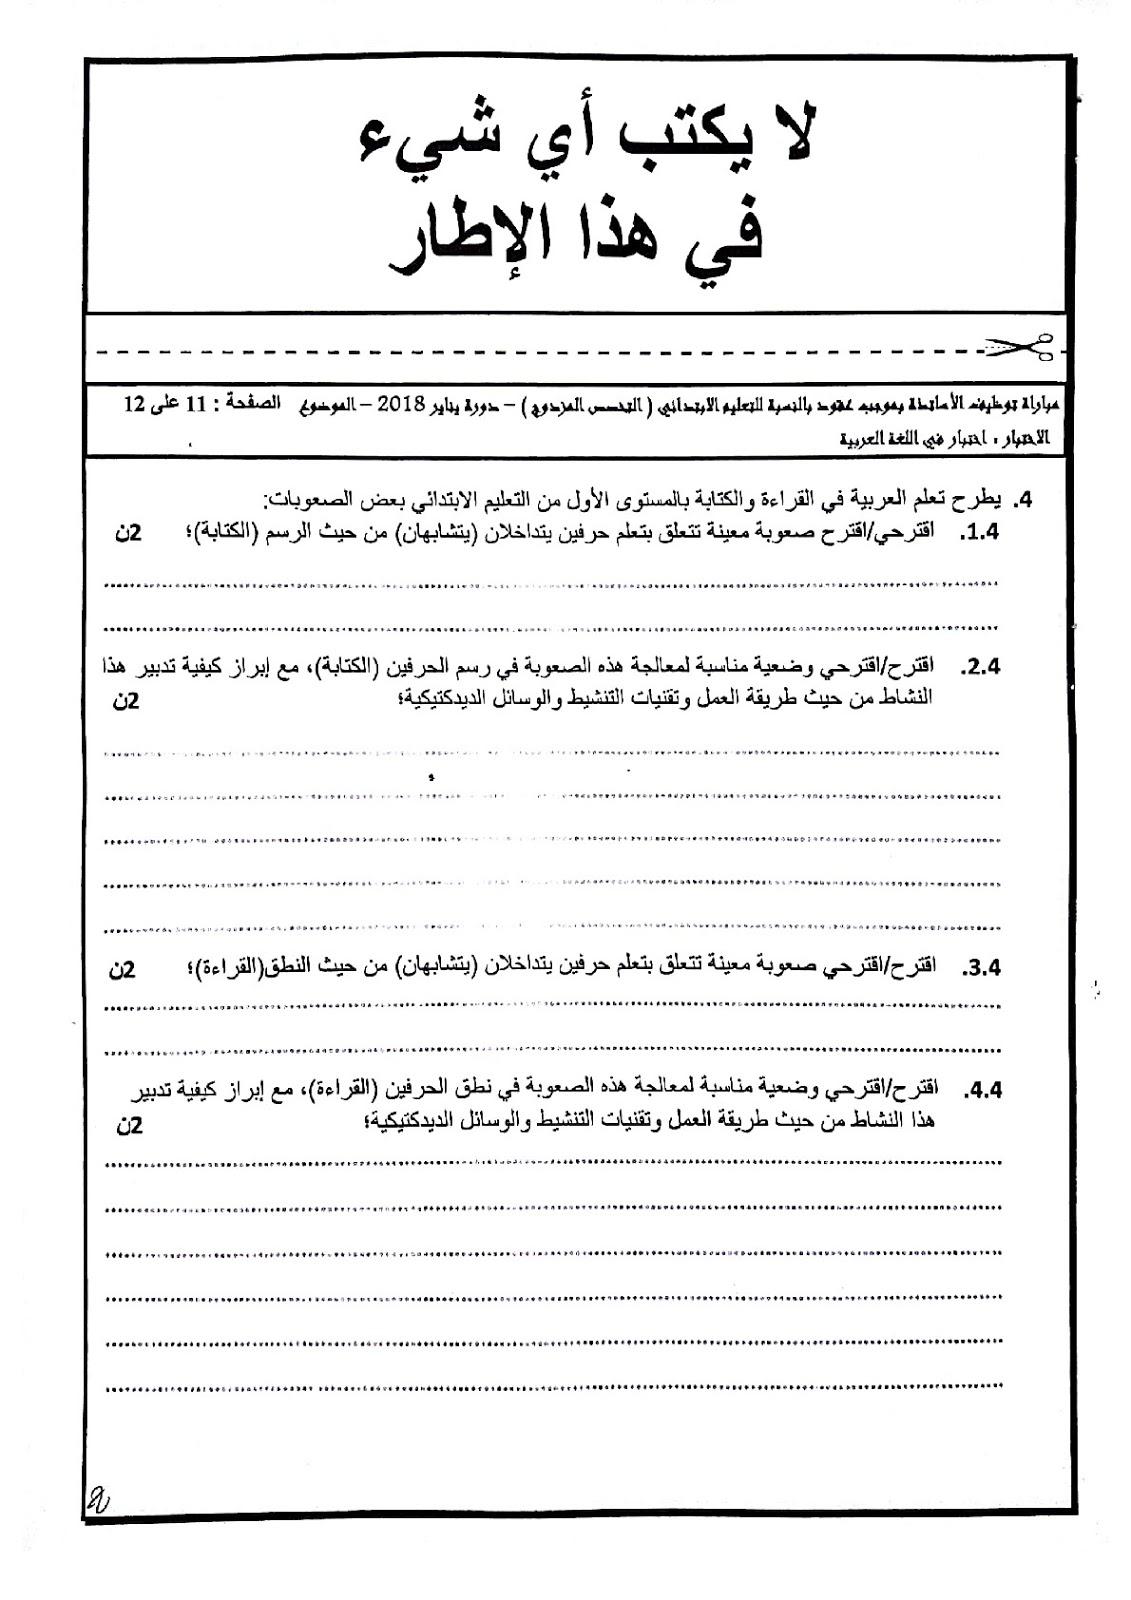 لا يكتب أي شيء
في هذا الإطار
مباراة توظيف الأساتذة بموجب عقود بالنسبة للتعليم الابتدائي ( التخصص المزدوج ) – دورة يناير 2018 – الموضوع الصفحة : 11 على 12
الاختبار : اختبار في اللغة العربية
4. يطرح تعلم العربية في القراءة والكتابة بالمستوى الأول من التعليم الابتدائي بعض الصعوبات:
1.4. اقترحي/اقترح صعوبة معينة تتعلق بتعلم حرفين يتداخلان (يتشابهان) من حيث الرسم (الكتابة)؛ 2ن
2.4. اقترح/اقترحي وضعية مناسبة لمعالجة هذه الصعوبة في رسم الحرفين (الكتابة)، مع إبراز كيفية تدبير هذا
النشاط من حيث طريقة العمل وتقنيات التنشيط والوسائل الديدكتيكية؛ 2ن
3.4. اقترح/اقترحي صعوبة معينة تتعلق بتعلم حرفين يتداخلان (يتشابهان) من حيث النطق(القراءة)؛ 2ن
4.4. اقترح/اقترحي وضعية مناسبة لمعالجة هذه الصعوبة في نطق الحرفين (القراءة)، مع إبراز كيفية تدبير
هذا النشاط من حيث طريقة العمل وتقنيات التنشيط والوسائل الديدكتيكية؛ 2ن